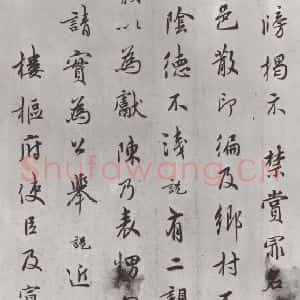 揭示禁賞罪名
邑散印徧及鄉村
陰德不淺說有二親
以為獻陳乃表甥
請實為公舉說近
樓樞府使臣及
Shufawang.Cn